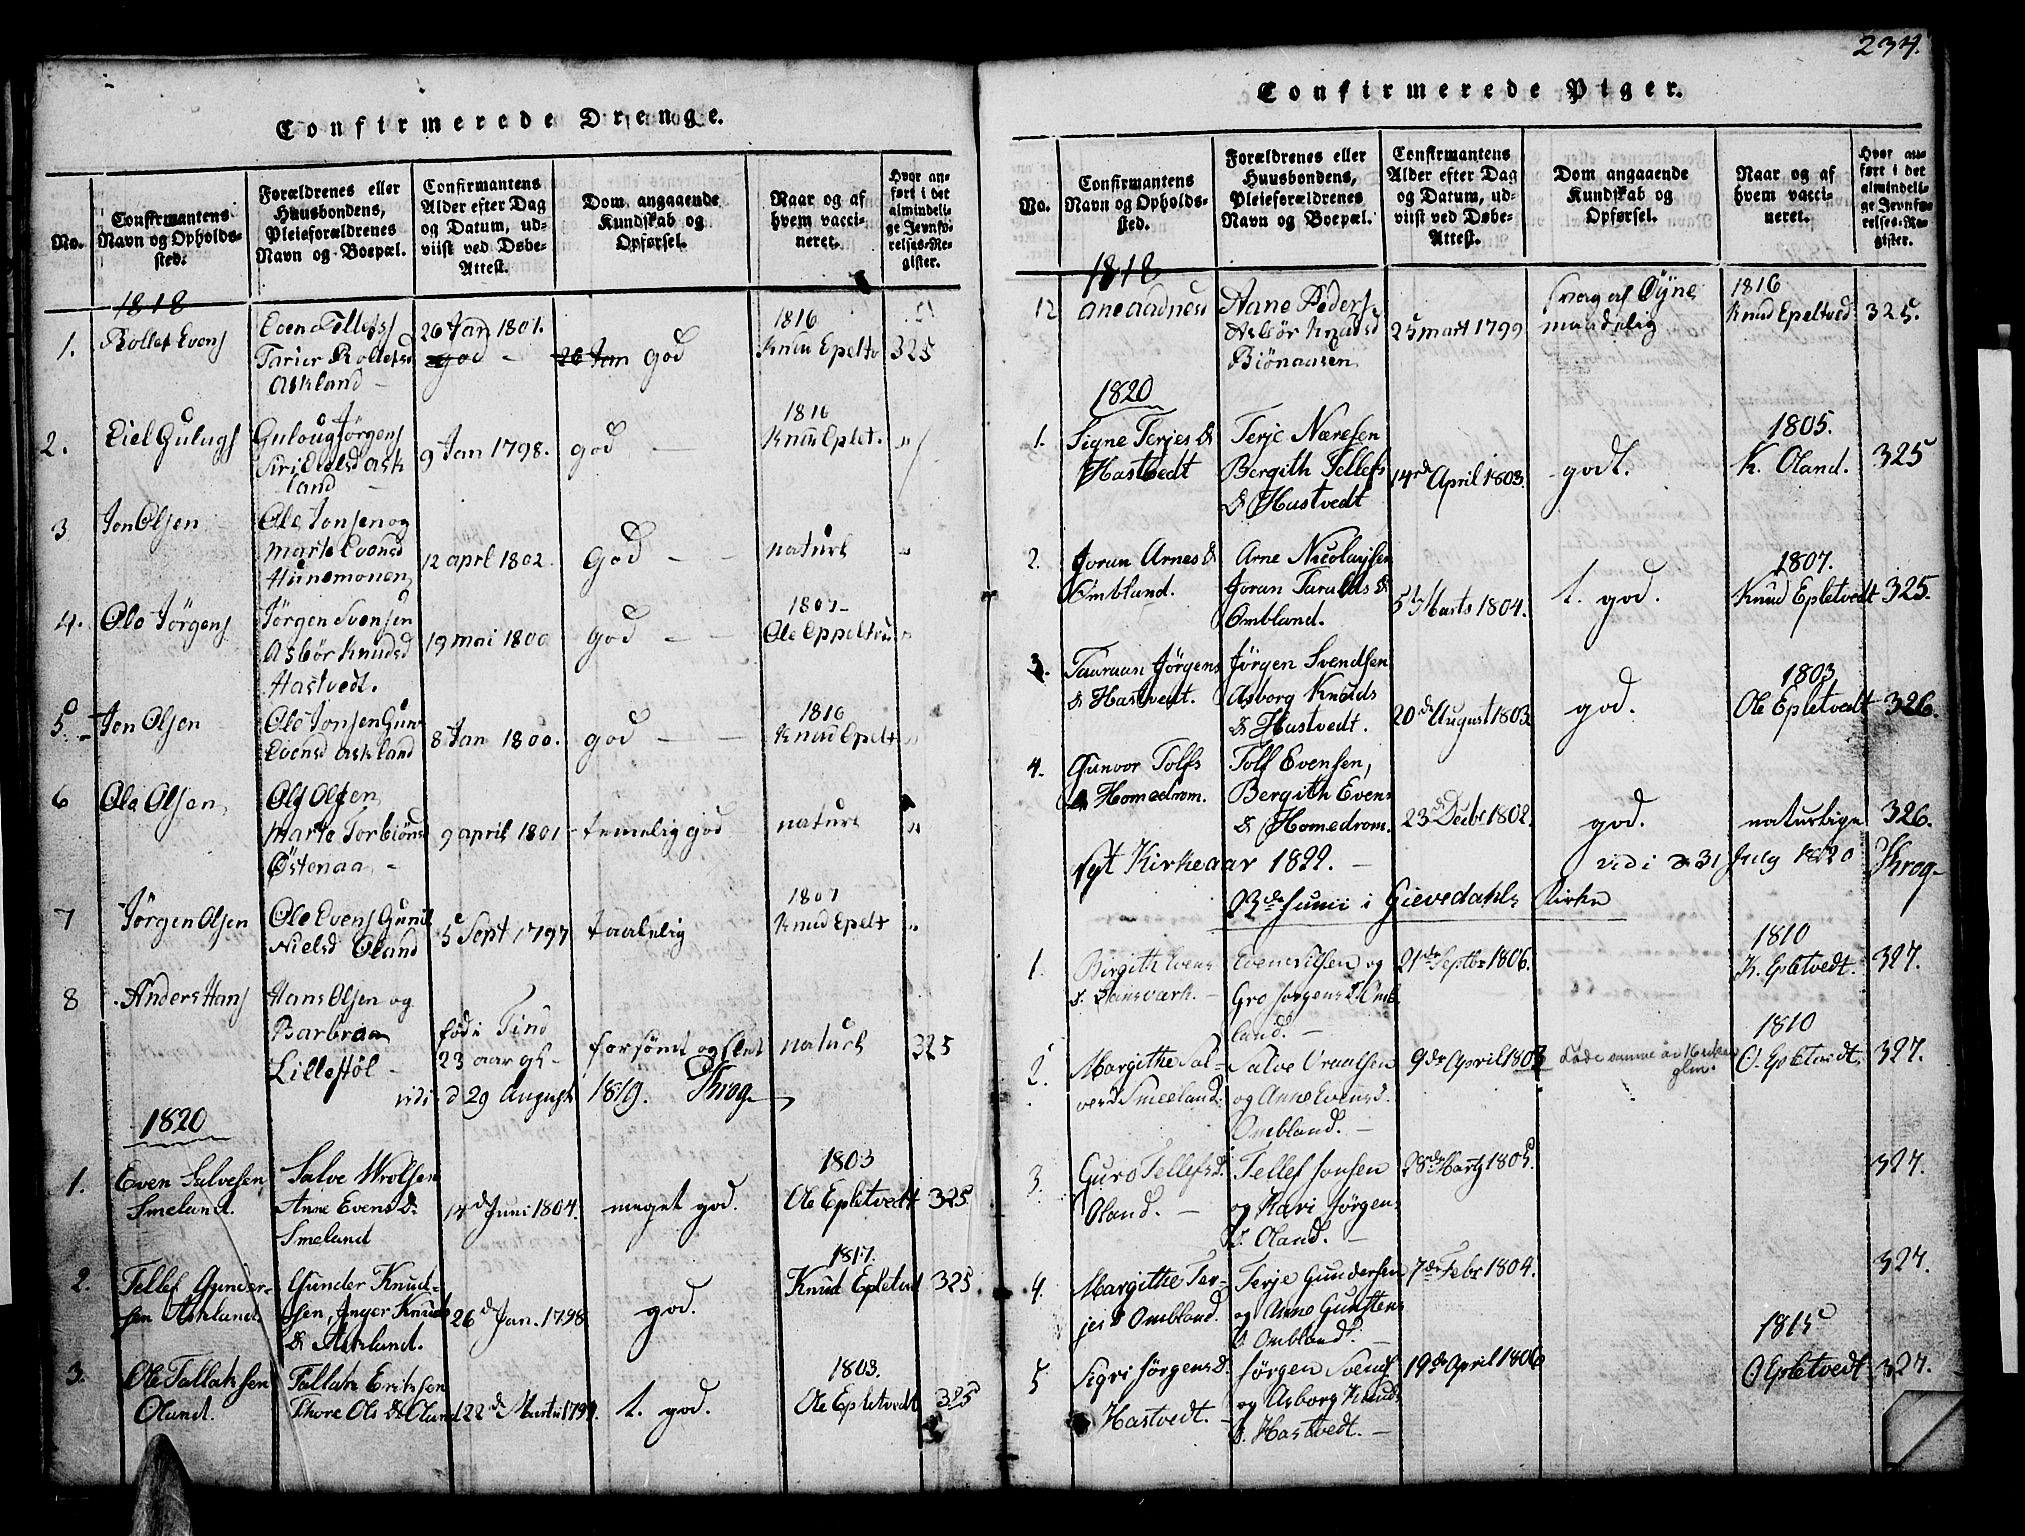 234.
Confirmerede Drenge.
No.
Confirmantens Navn og Opholdssted.
Forældrenes eller Huusbondens, Pleieforældrenes Navn og Boepæl.
Confirmantens Alder efter Dag og Datum, udviist ved Døbe-Attest.
Dom angaaende Kundskab og Opførsel.
Naar og af hvem vaccineret.
Hvor anført i det almindelige Jevnførelses-Register.
1818
1. Rollef Evens
Even Tellefs
Tarier Rollefsd
Askland
26 Jan 1801.
god
1816
Knud Epeltv
325
2. Eiel Gulugs
Guloug Jörgens
Siri Eielsd Ask
land
9 Jan 1798.
god
1816
Knud Eplet.
"
3 Jon Olsen
Ole Jonsen og
Marte Evensd
Hunemonen
12 aprl 1802.
god
naturl
"
4. Ole Jörgens
Jörgen Svensen
Asbör Knudsd
Hastvedt.
19 mai 1800
god
1807
Ole Eppeltv
"
5. Jon Olsen
Ole Jonsen Gun
Evensd Askland
8 Jan 1800.
god
1816
Knud Epelt
"
6 Ole Olsen
Ole Olsen
Marte Torbiöns
Östenaa
9 april 1801
temelig god
naturl
"
7 Jörgen Olsen
Ole Evens Gunil
Nielsd Öland
5 Sept 1797
taalelig
1807
Knud Epelt
"
8 Anders Hans
Hans Olsen og
Barbraa
Lillestöl
föd i Tind
23 aar gl
forsömt og slet
naturl
325
vidi d 29 August 1819. Krog
1820
1. Even Salvesen
Smeland.
Salve Wrolsen
Anne Evens D.
Smeland
14d Juni 1804.
meget god.
1803
Ole Epletvedt
325.
2. Tellef Gunder-
sen Askland
Gunder Knud-
sen, Inger Knuds
D. Askland.
26d Jan. 1798
god.
1817.
Knud Epletvedt
325
3. Ole Tallaksen
Oland.
Tallak Eriksen
Thore Ols D. Oland
22d Martii 1799.
t. god.
1803.
Ole Epletvedt
325
Confirmerede Piger.
No.
Confirmantens Navn og Opholdssted.
Forældrenes eller Huusbondens, Pleieforældrenes Navn og Boepæl.
Confirmantens Alder efter Dag og Datum, udviist ved Døbe-Attest.
Dom angaaende Kundskab og Opførsel.
Naar og af hvem vaccineret.
Hvor anført i det almindelige Jevnførelses-Register.
1818
12 Ane Aadnesd
Aane Peders
Asbör Knudsd
Biönaasen
25 mart 1799
svag af Öyne
maadelig
1816
Knud Epeltved
325.
1820
1. Signe Terjes D.
Hastvedt
Terje Næresen
Bergith Tellefs
D. Hastvedt
14de April 1803.
godt.
1805.
K. Oland.
325
2. Joran Arnes D.
Ombland.
Arne Nicolaysen
Joran Taralds D.
Ombland.
5te Marts 1804.
t. god.
1807.
Knud Epletvedt
325.
3. Tauraan Jörgens
D. Hastvedt.
Jörgen Svendsen
Asborg Knuds
D. Hastvedt.
20de August 1803
god.
1803
Ole Epletvedt
326.
4. Gunvor Tolfs
D. Homedrom.
Tolf Evensen,
Bergith Evens
D. Homedrom.
23d Decbr 1802.
god.
naturlige
326.
vidi d 31 July 1820 Krog
Nyt Kirkeaar 1822.
23de Junii i Gievedahls Kirke
1. Birgith Evens
D.
Even Nilsen og
Gro Jörgens D. Omb
land.
21de Septbr 1806.
1810
K. Epletvedt.
327.
2. Margithe Sal-
vesd Smeeland.
Salve Vraalsen
og Anne Evens d.
Ombland.
9de April 1807
1810
O. Epletvedt.
327.
3. Guro Tellefs d.
Oland.
Tellef Jonsen
og Kari Jörgens
D. Oland.
28de Martz 1805.
327.
4. Margithe Ter-
jes D Ombland.
Terje Gundersen
og Anne Gunstens
D. Ombland.
7de Febr 1804.
327.
5 Sigri Jörgens d.
Hastvedt.
Jörgen Svends
og Asborg Knuds
D. Hastvedt.
19de April 1806
1815
O Epletvedt
327.